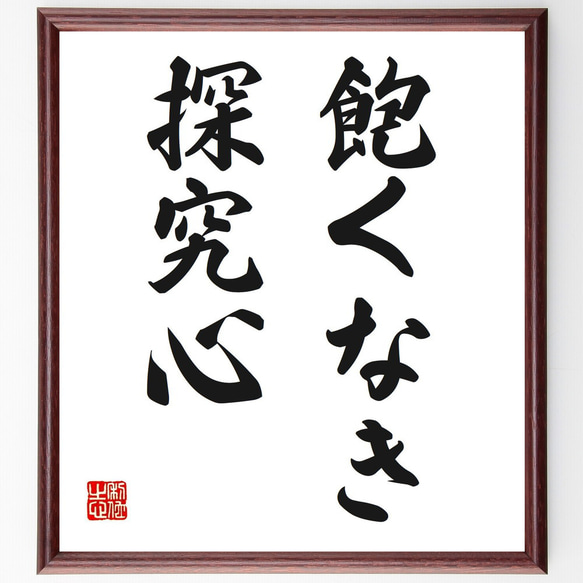 飽くなき
探究心